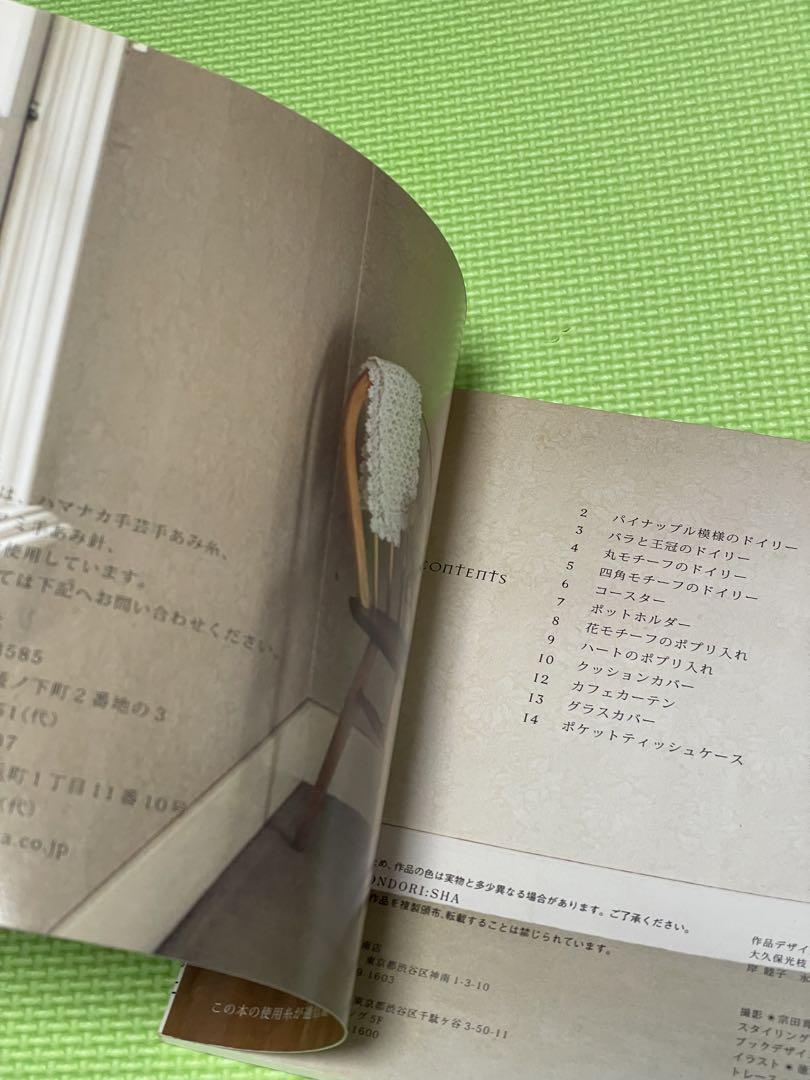 は、ハマナカ手芸手あみ糸、
手あみ針、
使用しています。
ては下記へお問い合わせください。
8585
ノ下町2番地の3
51(代)
町1丁目11番10号
(代)
a.co.jp
contents
2 パイナップル模様のドイリー
3 バラと王冠のドイリー
4 丸モチーフのドイリー
5 四角モチーフのドイリー
6 コースター
7 ポットホルダー
8 花モチーフのポプリ入れ
9 ハートのポプリ入れ
10 クッションカバー
12 カフェカーテン
13 グラスカバー
14 ポケットティッシュケース
ため、作品の色は実物と多少異なる場合があります。ご了承ください。
ONDORI:SHA
作品を複製頒布、転載することは禁じられています。
南店
東京都渋谷区神南1-3-10
1603
東京都渋谷区千駄ヶ谷3-50-11
グ5F
1600
この本の使用糸が
作品デザイ
大久保光枝
岸 睦子
撮影＊宗田
スタイリング
ブックデザイ
イラスト＊
トレース